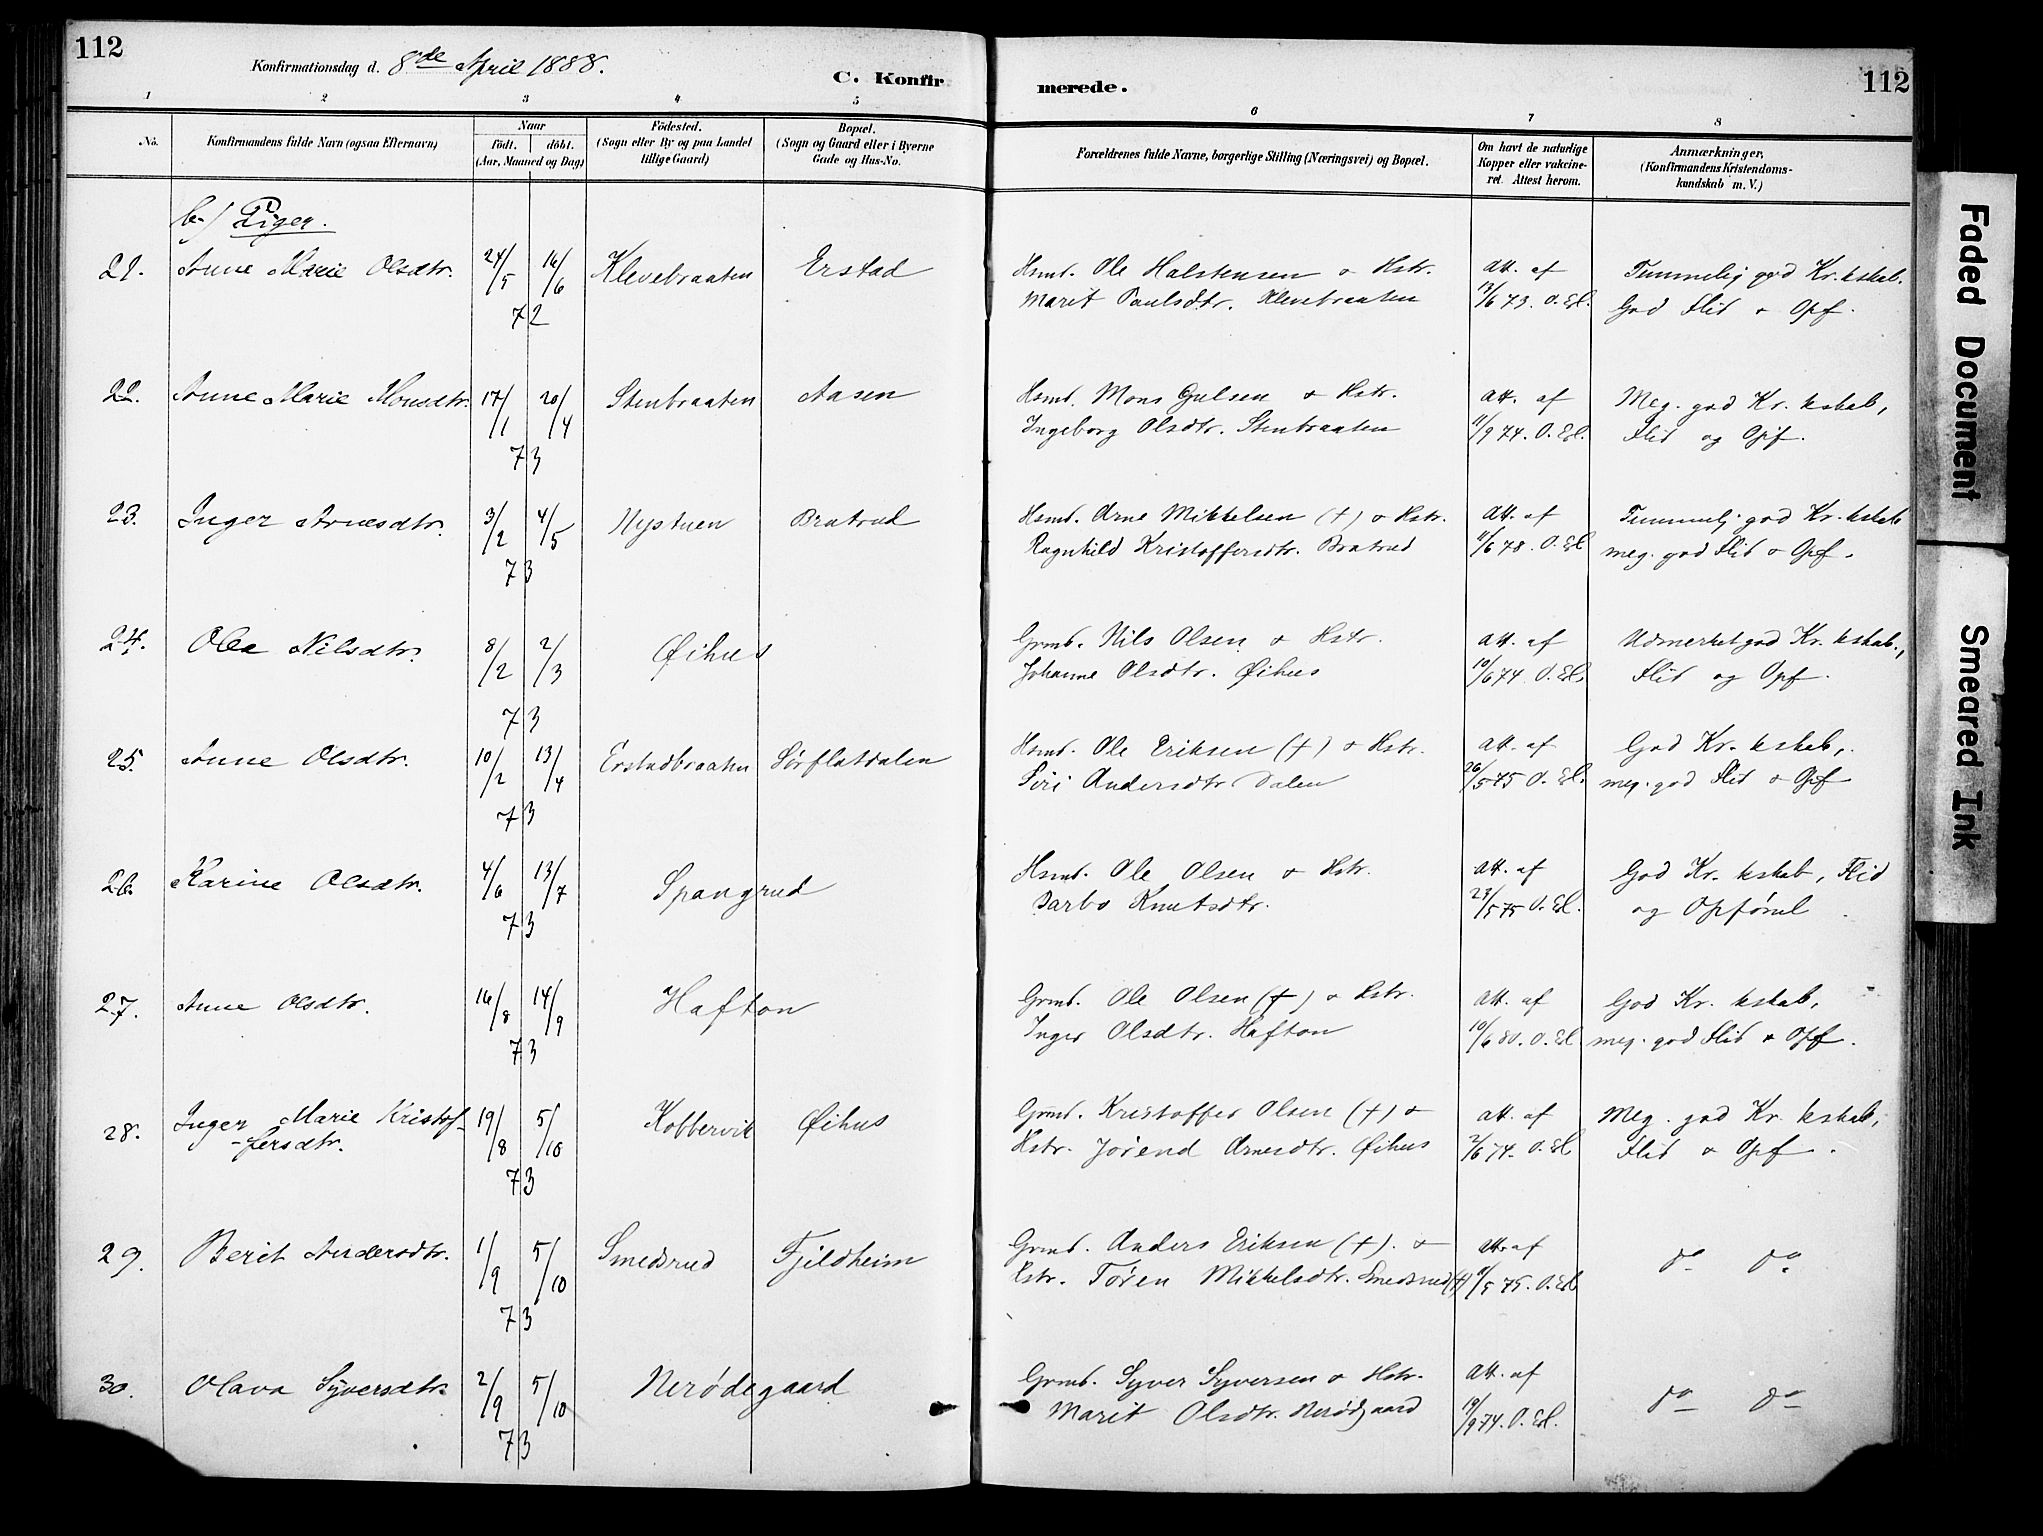 112
Konfirmationsdag d. 8de April 1888.
C. Konfir
merede.
112
1 2 3 4 5 6 7 8
No.
Konfirmandens fulde Navn (ogsaa Efternavn)
Naar
födt. döbt.
(Aar, Maaned og Dag)
Födested.
(Sogn eller By og paa Landet
tillige Gaard)
Bopæl.
(Sogn og Gaard eller i Byerne
Gade og Hus-No.
Forældrenes fulde Navne, borgerlige Stilling (Næringsvei) og Bopæl.
Om havt de naturlige
Kopper eller vakcine-
ret. Attest herom.
Anmærkninger,
(Konfirmandens Kristendoms-
kundskab m. V.)
b.) Piger.
21. Anne Marie Olsdtr. 24/5 16/6 72 Klevebraaten Erstad
Hsmd. Ole Halstensen & Hstr.
Marit Paulsdtr. Klevebraaten
Att. af
13/6 73. O. El.
Temmelig god Kr. kskab.
God Flid & Opf.
22. Anne Marie Monsdtr. 17/1 20/4 73 Stenbraaten Aasen
Hsmd. Mons Gulsen & Hstr.
Ingeborg Olsdtr. Stenbraaten
Att. af
11/9 74. O. El.
Meg. god Kr. kskab,
Flid og Opf.
23. Inger Arnesdtr. 3/2 4/5 73 Nystuen Bratrud
Hsmd. Arne Mikkelsen (+) & Hstr.
Ragnhild Kristoffersdtr. Bratrud
Att. af
11/6 78. O. El
Temmelig god Kr. kskab
meg. god Flid & Opf.
24. Olea Nilsdtr. 8/2 2/3 73 Øihus
Grmd. Nils Olsen & Hstr.
Johanne Olsdtr. Øihus
Att. af
10/6 74 O. El.
Udmerket god Kr. kskab.,
Flid og Opf.
25. Anne Olsdtr. 10/2 13/4 73 Erstadbraaten Sørflatdalen
Hsmd. Ole Eriksen (+) & Hstr.
Siri Andersdtr Dalen
Att. af
26/5 75 O. El.
God Kr. kskab,
meg. god Flid & Opf
26. Karine Olsdtr. 4/6 13/7 73 Spangrud
Hsmd. Ole Olsen & Hstr.
Barbo Knutsdtr.
Att. af
23/5 75 O. El.
God Kr. kskab, Flid
og Opførsel
27. Anne Olsdtr. 16/8 14/9 73 Hafton
Grmd. Ole Olsen (+) & Hstr.
Inger Olsdtr. Hafton
Att. af
10/6 80. O. El.
God Kr. kskab,
meg. god Flid & Opf.
28. Inger Marie Kristof-
-fersdtr. 19/8 5/10 73 Kobbervik Øihus
Grmd. Kristoffer Olsen (+) &
Hstr. Jørend Arnesdtr. Øihus
Att. af
2/6 74. O. El
Meg. god Kr. kskab,
Flid & Opf.
29. Berit Andersdtr. 1/9 5/10 73 Smedsrud Fjeldheim
Grmd. Anders Eriksen (+). &
Hstr. Tøren Mikkelsdtr. Smedsrud (+)
Att. af
/5 75. O. El
do do
30. Olava Syversdtr. 2/9 5/10 73 Nerødegaard
Grmd. Syver Syversen & Hstr.
Marit Olsdtr. Nerødgaard
Att. af
19/9 74. O. El.
do do
Faded Document
Smeared Ink